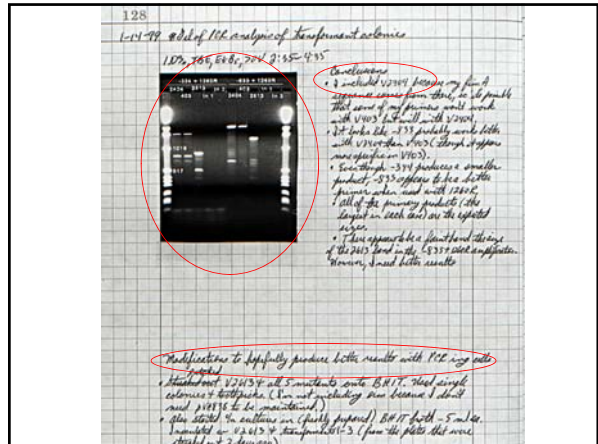 128
1-14-99 Gel of PCR analysis of transformant colonies
1.0%, TBE, EtBr, 70V 2:35-4:35
-394 + 1260R -833 + 1260R
Conclusions
• I included V2404 because my
sequence comes from there, so its possible
that some of my primers won't work
with V403 but will with V2404.
• It looks like -833 probably works better
with V2404 than V403 (though it appears
more specific in V403).
• Even though -394 produces a smaller
product -833 appears to be a better
primer when used with 1260R.
• All of the primary products (the
largest in each case) are the expected
sizes.
• There appears to be a faint band the size
of the 2613 band in the -833 + 1260R amplification
However, I need better results
Modifications to hopefully produce better results with PCR ing cells
• Streaked out V2613 + all 5 mutants onto BHIT. Used single
colonies + toothpicks (I'm not including because I don't
need to be maintained.)
• Also started cultures in (freshly prepared) BHIT broth - 5 mls.
Inoculated w V2613 & transformants 1-3 (from the plates that were
streaked out 2 days ago)